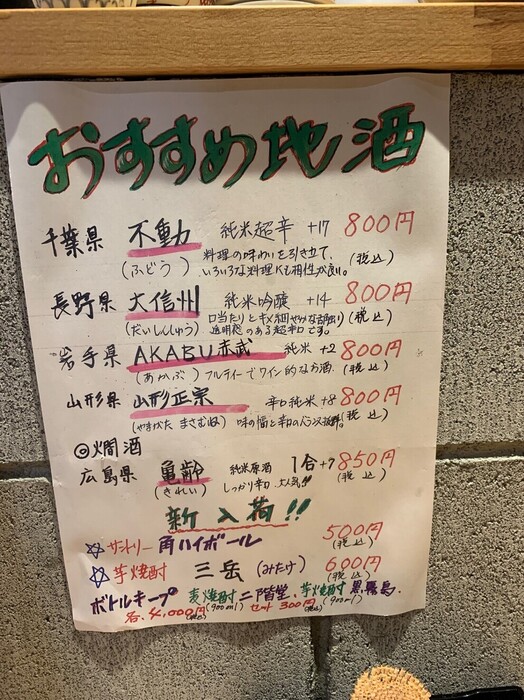 おすすめ地酒
千葉県 不動 純米超辛 +17 800円
(ふどう) 料理の味わいを引き立て、 (税込)
いろいろな料理にも相性が良い。
長野県 大信州 純米吟醸 +14 800円
(だいしんしゅう) 口当たりとキメ細やかな舌触り (税込)
透明感のある超辛口です。
岩手県 AKABU赤武 純米 +2 800円
(あかぶ) フルティーでワイン的なお酒 (税込)
山形県 山形正宗 辛口純米 +8 800円
(やまがた まさむね) 味の幅と辛口のバランス抜群。 (税込)
◎燗酒
広島県 亀齢 純米原酒 1合+7 850円
(きれい) しっかり辛口 大人気!! (税込)
新入荷!!
☆サントリー 角ハイボール 500円
(税込)
☆芋焼酎 三岳 (みたけ) 600円
(税込)
ボトルキープ 麦焼酎 二階堂、芋焼酎 黒霧島.
各、4,000円(税込) (900ml) セット 300円(税込) (900ml)